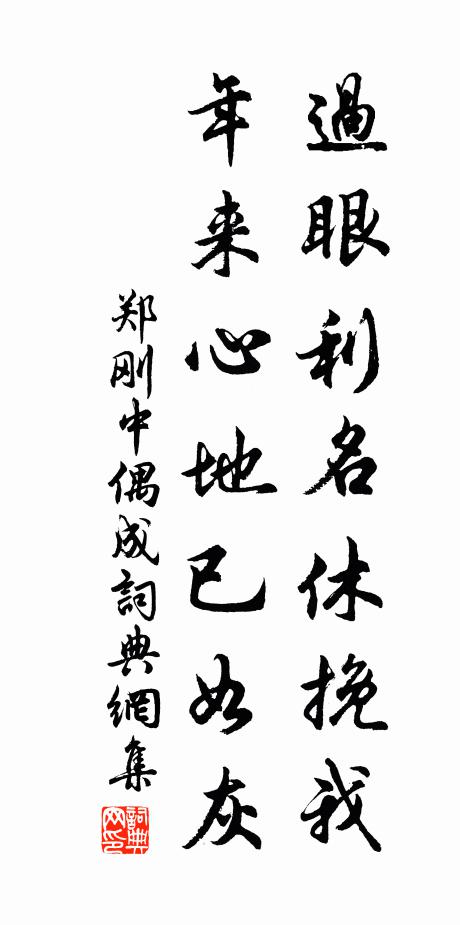 過眼利名休挽我
年来心地已如灰
郑刚中偶成詞典網集
詞典网印